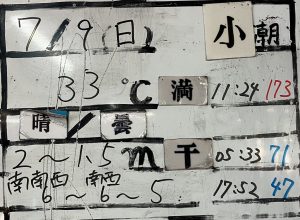 7/9(日) 小潮
33℃ 満 11:24 173
晴/曇
2～1.5m 干 05:33 71
南南西 南西 17:52 47
6～6～5